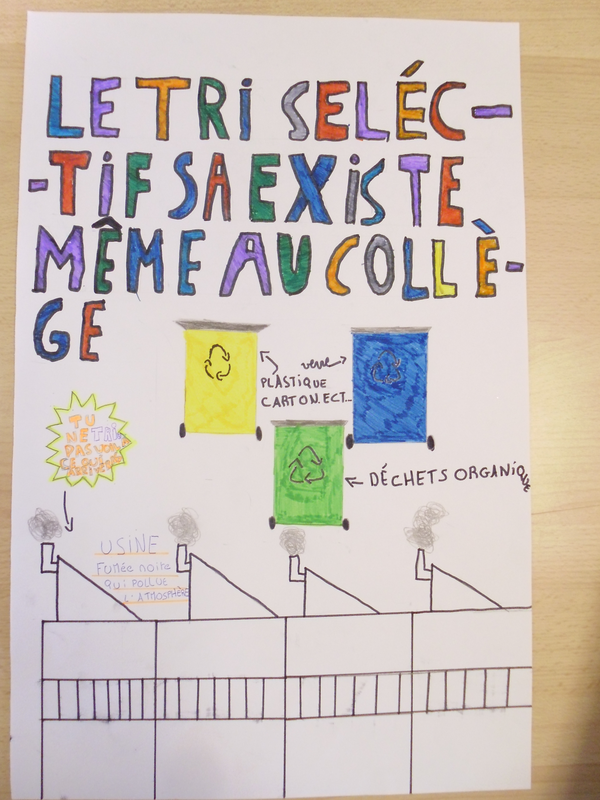 LE TRI SELÉC-
-TiF SA EXiSTE
MÊME AU COLLÈ-
GE
verre
PLASTIQUE
CARTON.ECT...
DÉCHETS ORGANIQUE
TU
NE TRI
PAS
USINE
Fumée noire
qui POLLUE
L'ATMOSPHÈRE